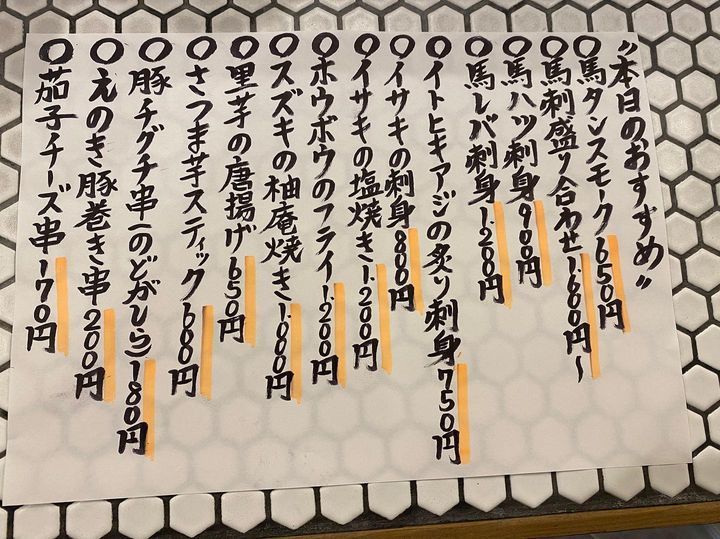 "本日のおすすめ"
○馬タンスモーク650円
○馬刺盛り合わせ1.600円〜
○馬ハツ刺身900円
○馬レバ刺身1.200円
○イトヒキアジの炙り刺身750円
○イサキの刺身800円
○イサキの塩焼き1.200円
○ホウボウのフライ1.200円
○スズキの柚庵焼き1.000円
○里芋の唐揚げ650円
○さつま芋スティック600円
○豚チグチ串(のどがしら)180円
○えのき豚巻き串200円
○茄子チーズ串170円